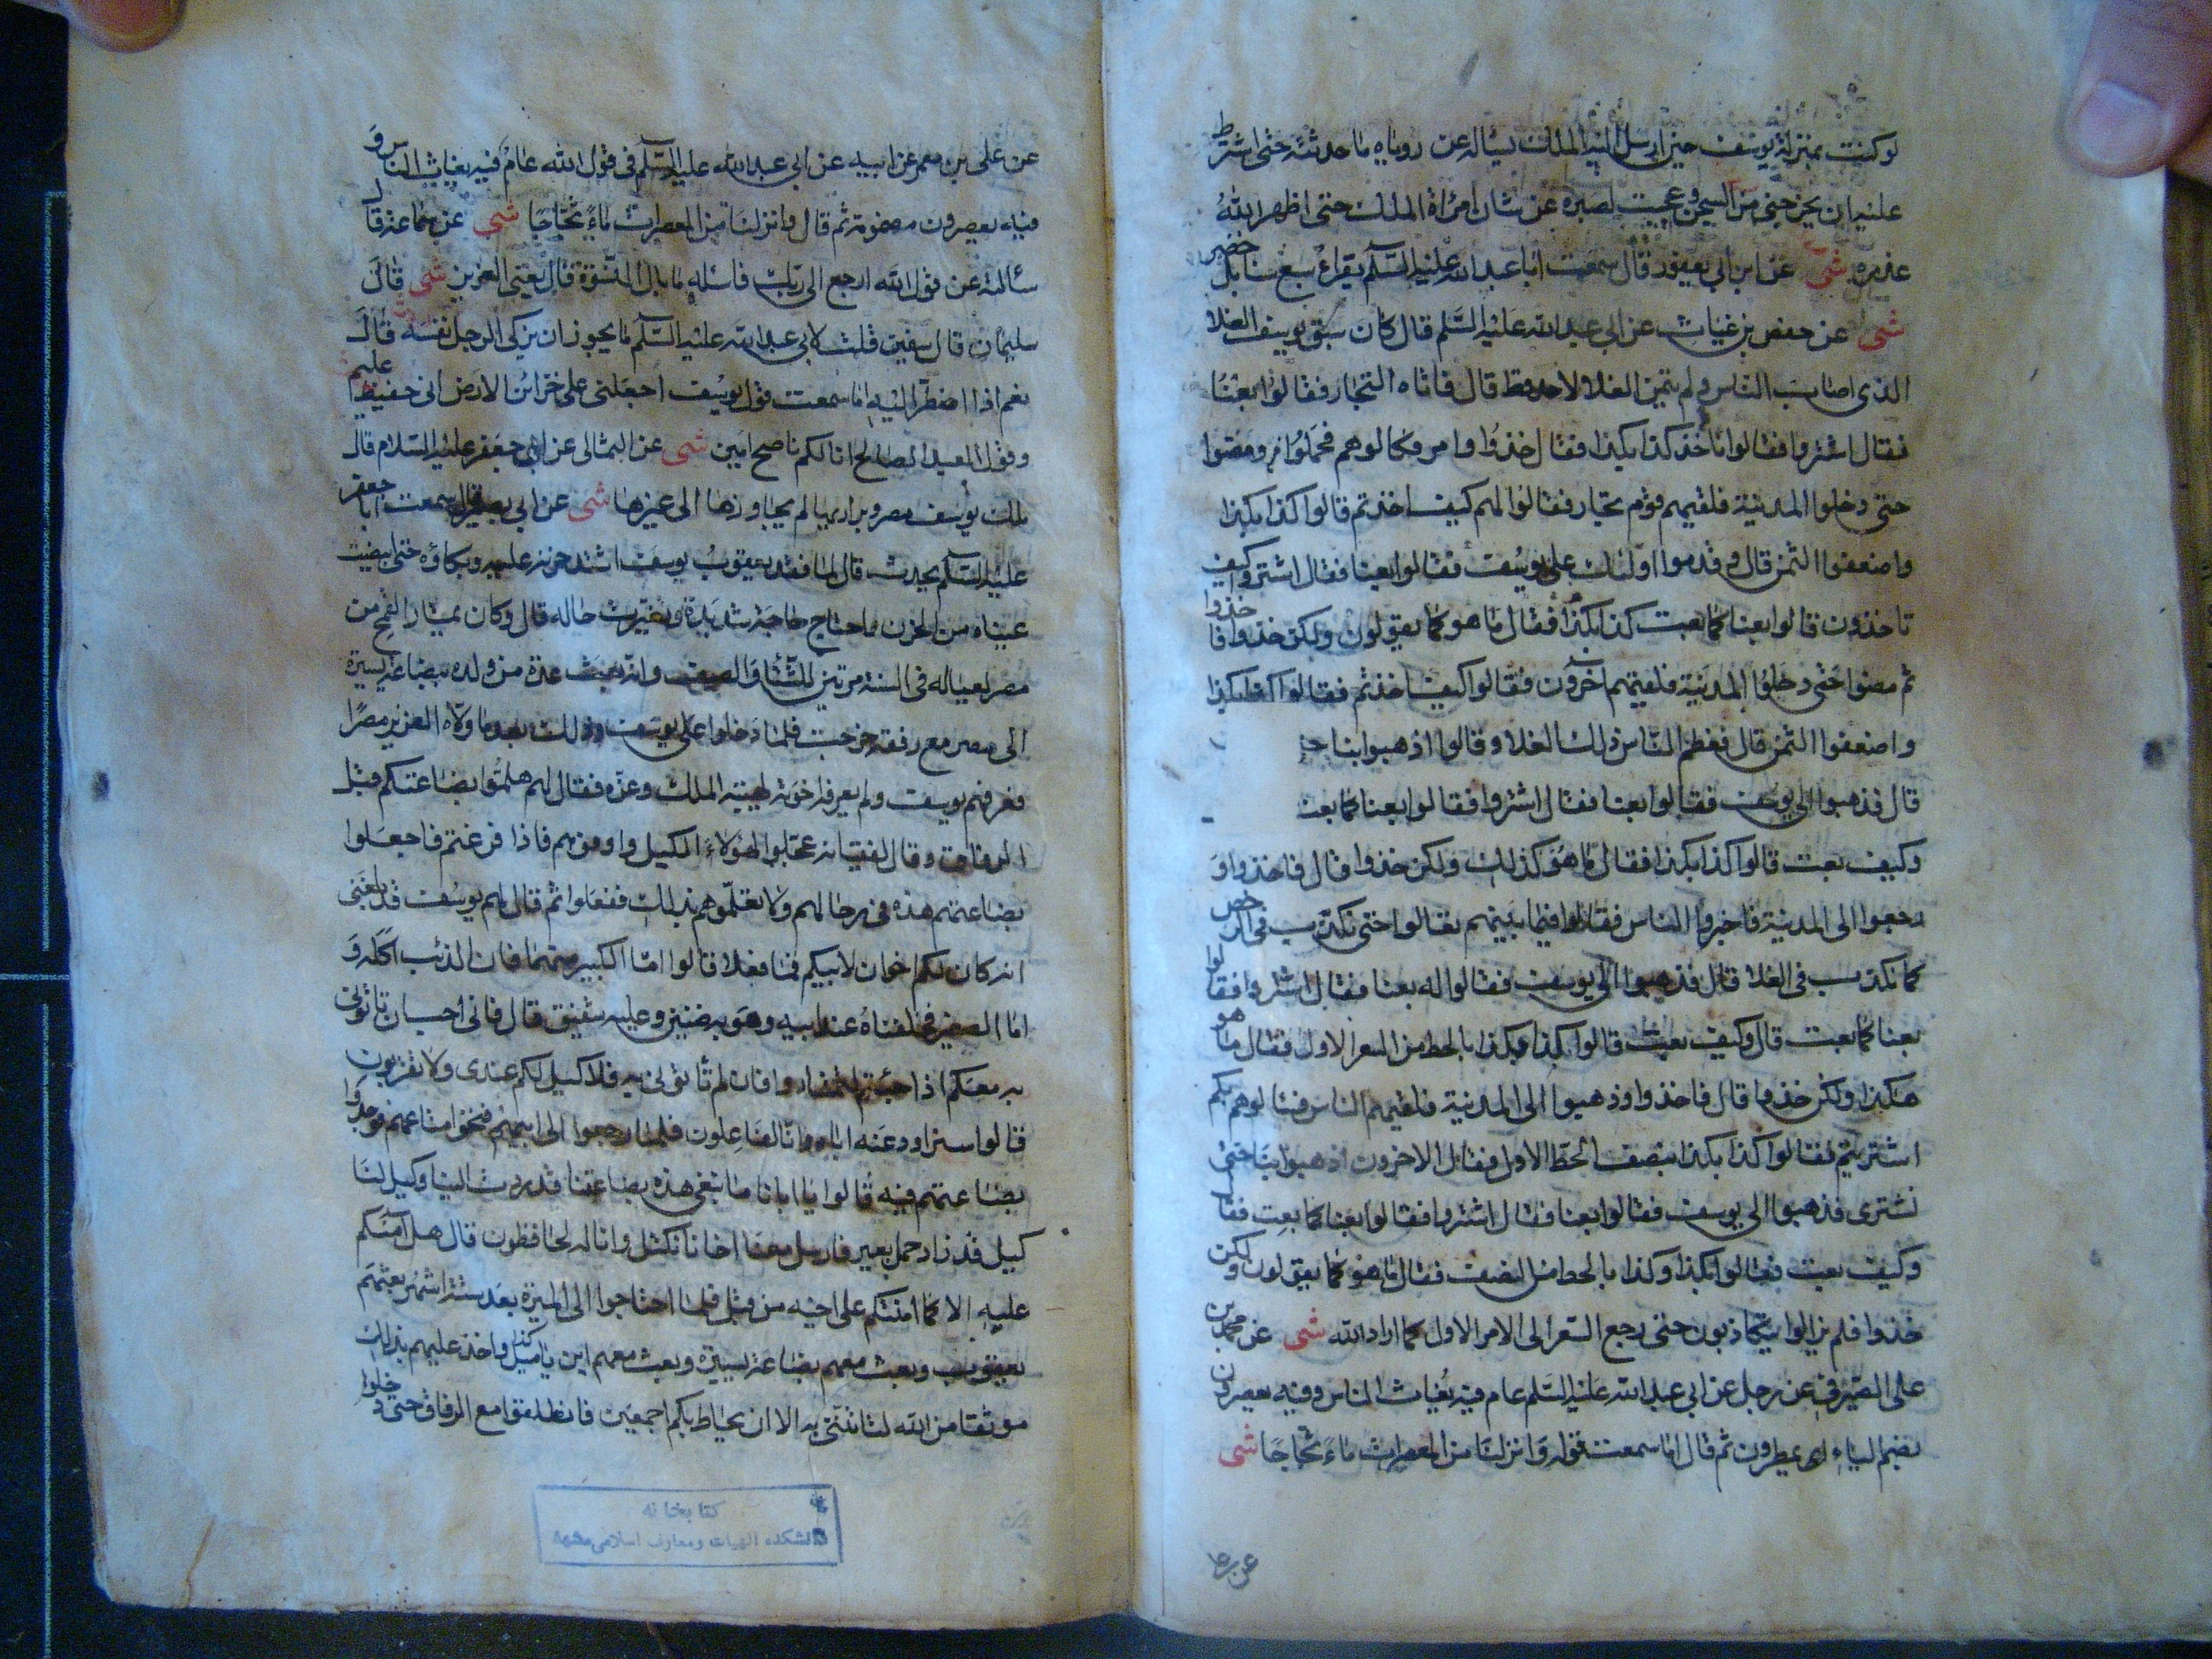 لو كنت بمنزلة يوسف حين ارسل اليه الملك يسأله عن روياه ما حدثته حتى اشترط
عليه ان يخرجنى من السجن وعجبت لصبره عن شان امراة الملك حتى اظهر الله
عذره شى عن ابن ابى يعفور قال سمعت ابا عبد الله عليه السلم يقراء سبع سنابل خضر
شى عن حفص بن غياث عن ابى عبد الله عليه السلم قال كان سبق يوسف الغلا
الذى اصاب الناس ولم يتمن الغلا لاحد قط قال فاتاه التجار فقالوا بعنا
فقال اشتروا فقالوا ناخذ كذا بكذا فقال خذوا وامر فكالوهم فحملوا ومضوا
حتى دخلوا المدينة فلقيهم قوم تجار فقالوا لهم كيف اخذتم قالوا كذا بكذا
واضعفوا الثمن قال وقدموا اولئك على يوسف فقالوا بعنا فقال اشتروا كيف
تاخذون قالوا بعنا كما بعت كذا بكذا فقال ما هو كما يقولون ولكن خذوا فاخذوا
ثم مضوا حتى دخلوا المدينة فلقيهم آخرون فقالوا كيف اخذتم فقالوا كذا بكذا
واضعفوا الثمن قال فعظم الناس ذلك الغلا وقالوا اذهبوا بنا
قال فذهبوا الى يوسف فقالوا بعنا فقال اشتروا فقالوا بعنا كما بعت
وكيف بعت قالوا كذا بكذا فقال ما هو كذلك ولكن خذوا قال فاخذوا و
رجعوا الى المدينة فاخبروا الناس فقالوا فيما بينهم تعالوا حتى نكذب فى الرخص
كما نكذب فى الغلا قال فذهبوا الى يوسف فقالوا له بعنا فقال اشتروا فقالوا
بعنا كما بعت قال وكيف بعت قالوا بكذا وبكذا بالحط من السعر الاول فقال ما هو
هكذا ولكن خذوا قال فاخذوا وذهبوا الى المدينة فلقيهم الناس فسالوهم بكم
اشتريتم فقالوا كذا بكذا بنصف الحط الاول فقال الاخرون اذهبوا بنا حتى
نشترى فذهبوا الى يوسف فقالوا بعنا فقال اشتروا فقالوا بعنا كما بعت فقال
وكيف بعت فقالوا بكذا وكذا بالحط من النصف فقال ما هو كما يقولون ولكن
خذوا فلم يزالوا يتكاذبون حتى رجع السعر الى الامر الاول كما اراد الله شى عن محمد بن
على الصيرفى عن رجل عن ابى عبد الله عليه السلم عام فيه يغاث الناس وفيه يعصرون
بضم الياء اى يمطرون ثم قال اما سمعت قوله وانزلنا من المعصرات ماء ثجاجا شى
عن على
عن على بن معمر عن ابيه عن ابى عبد الله عليه السلم فى قول الله عام فيه يغاث الناس و
فيه يعصرون مضمومة ثم قال وانزلنا من المعصرات ماء ثجاجا شى عن سماعة قال
سألته عن قول الله ارجع الى ربك فاسئله ما بال النسوة قال يعنى العزيز شى قال
سليمان قال سفين قلت لابى عبد الله عليه السلم ما يجوز ان يزكى الرجل نفسه قال
نعم اذا اضطر اليه اما سمعت قول يوسف اجعلنى على خزائن الارض انى حفيظ عليم
وقول العبد الصالح انا لكم ناصح امين شى عن الثمالى عن ابى جعفر عليه السلام قال
ملك يوسف مصر وبراريها لم يجاوزها الى غيرها شى عن ابى بصير قال سمعت ابا جعفر
عليه السلم يحدث قال لما فقد يعقوب يوسف اشتد حزنه عليه وبكاؤه حتى ابيضت
عيناه من الحزن واحتاج حاجة شديدة وتغيرت حاله قال وكان يمتار القمح من
مصر لعياله فى السنة مرتين للشتا والصيف وانه بعث عدة من ولده ببضاعة يسيرة
الى مصر مع رفقة خرجت فلما دخلوا على يوسف وذلك بعد ما ولاه العزيز مصرا
فعرفهم يوسف ولم يعرفه اخوته لهيبة الملك وعزه فقال لهم هلموا بضاعتكم قبل
الرفاق وقال لفتيانه عجلوا لهؤلاء الكيل واوفوهم فاذا فرغتم فاجعلوا
بضاعتهم هذه فى رحالهم ولا تعلموهم بذلك ففعلوا ثم قال لهم يوسف قد بلغنى
انه كان لكم اخوان لابيكم فما فعلا قالوا اما الكبير منهما فان الذئب اكله و
اما الصغير فخلفناه عند ابيه وهو به ضنين وعليه شفيق قال فانى احب ان تاتونى
به معكم اذا جئتم لتمتاروا فان لم تأتونى به فلا كيل لكم عندى ولا تقربون
قالوا سنراود عنه اباه وانا لفاعلون فلما رجعوا الى ابيهم فتحوا متاعهم فوجدوا
بضاعتهم فيه قالوا يا ابانا ما نبغى هذه بضاعتنا قد ردت الينا وكيل لنا
كيل قد زاد حمل بعير فارسل معنا اخانا نكتل وانا له لحافظون قال هل آمنكم
عليه الا كما امنتكم على اخيه من قبل فلما احتاجوا الى الميرة بعد ستة اشهر بعثهم
يعقوب وبعث معهم بضاعة يسيرة وبعث معهم ابن ياميل واخذ عليهم بذلك
موثقا من الله لتاتننى به الا ان يحاط بكم اجمعين فانطلقوا مع الرفاق حتى دخلوا
كتابخانه
دانشكده الهيات ومعارف اسلامى مشهد